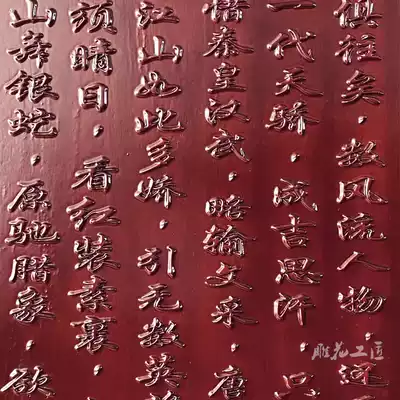 俱往矣，数风流人物，还
一代天骄，成吉思汗，只
惜秦皇汉武，略输文采，唐
江山如此多娇，引无数英
须晴日，看红装素裹，
山舞银蛇，原驰腊象，欲
雕花工匠